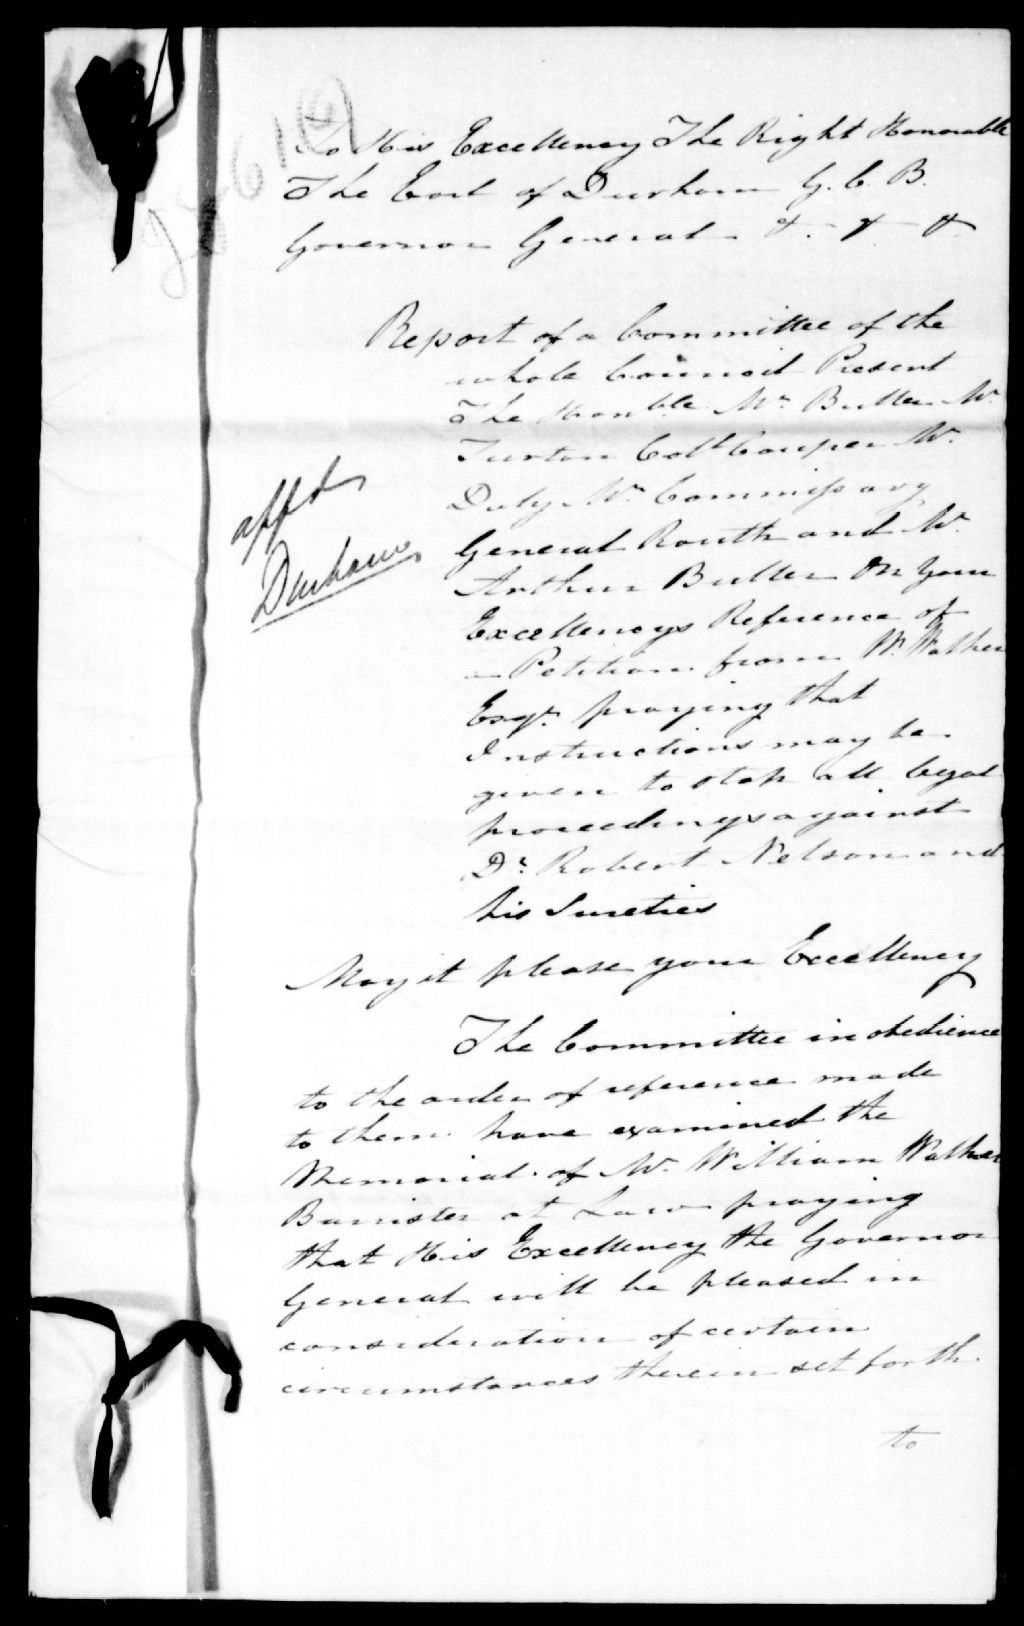 To His Excellency The Right Honorable
The Earl of Durham G. C. B.
Governor General &. &. &
Report of a Committee of the
whole Council Present
The Honble. Mr. Buller Mr.
Turton Coll. Couper Mr.
Daly Mr. Commissary
General Routh and Mr.
Arthur Buller On Your
Excellencys Reference of
a Petition from W. Walker
Esqr. praying that
Instructions may be
given to stop all legal
proceedings against
Dr. Robert Nelson and
his Sureties
appd
Durham
May it please your Excellency
The Committee in obedience
to the order of reference made
to them have examined the
Memorial of Mr. William Walker
Barrister at Law praying
that His Excellency the Governor
General will be pleased in
consideration of certain
circumstances therein set forth.
to